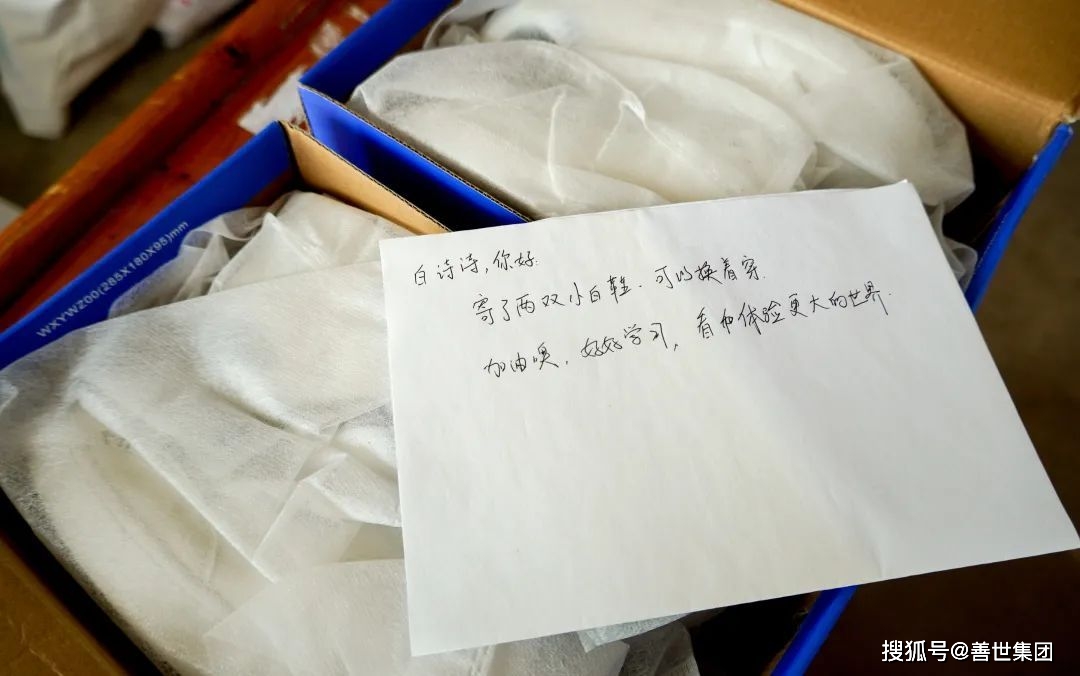 WXYWZ00(285X180X95)mm
白诗诗，你好：
寄了两双小白鞋．可以换着穿．
加油噢．好好学习，看和体验更大的世界．
搜狐号@善世集团